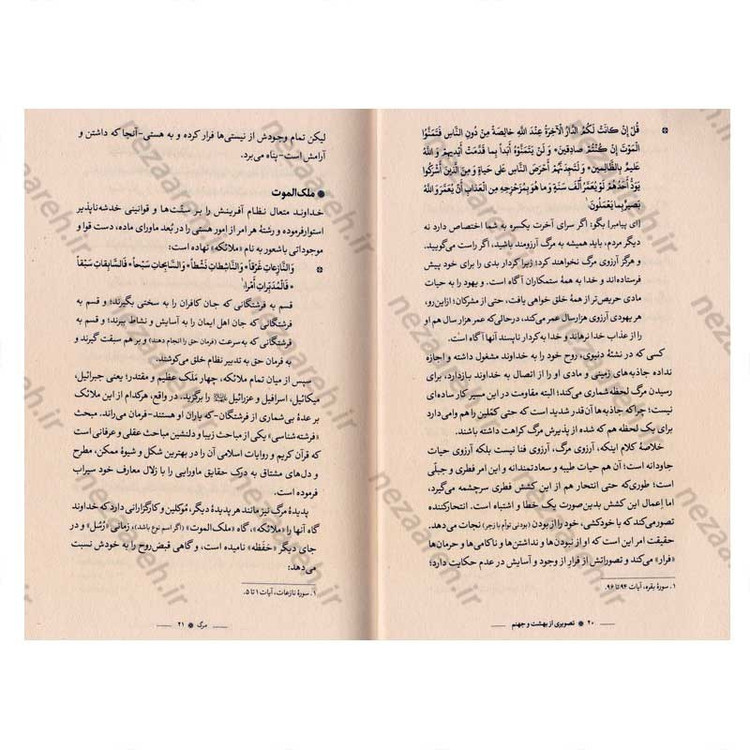 قُلْ إِنْ كَانَتْ لَكُمُ الدَّارُ الْآخِرَةُ عِنْدَ اللَّهِ خَالِصَةً مِنْ دُونِ النَّاسِ فَتَمَنَّوُا
الْمَوْتَ إِنْ كُنْتُمْ صَادِقِينَ* وَ لَنْ يَتَمَنَّوْهُ أَبَداً بِمَا قَدَّمَتْ أَيْدِيهِمْ وَ اللَّهُ
عَلِيمٌ بِالظَّالِمِينَ* وَ لَتَجِدَنَّهُمْ أَحْرَصَ النَّاسِ عَلى حَيَاةٍ وَ مِنَ الَّذِينَ أَشْرَكُوا
يَوَدُّ أَحَدُهُمْ لَوْ يُعَمَّرُ أَلْفَ سَنَةٍ وَ مَا هُوَ بِمُزَحْزِحِهِ مِنَ الْعَذَابِ أَنْ يُعَمَّرَ وَ اللَّهُ
بَصِيرٌ بِمَا يَعْمَلُونَ؛۱
(ای پیامبر) بگو: اگر سرای آخرت یکسره به شما اختصاص دارد نه
دیگر مردم، باید همیشه به مرگ آرزومند باشید، اگر راست می‌گویید.
و هرگز آرزوی مرگ نخواهند کرد؛ زیرا کردار بدی را برای خود پیش
فرستاده‌اند و خدا به همه ستمکاران آگاه است. و یهود را به حیات
مادی حریص‌تر از همهٔ خلق خواهی یافت، حتی از مشرکان؛ ازاین‌رو،
هر یهودی آرزوی هزارسال عمر می‌کند، درحالی‌که عمر هزار سال هم او
را از عذاب خدا نرهاند و خدا به کردار ناپسند آنها آگاه است.
کسی که در نشئهٔ دنیوی، روح خود را به خداوند مشغول داشته و اجازه
نداده جاذبه‌های زمینی و مادی او را از اتصال به خداوند بازدارد، برای
رسیدن مرگ لحظه‌شماری می‌کند؛ البته مقاومت در این مسیر کار ساده‌ای
نیست؛ چراکه جاذبه‌ها آن‌قدر شدید است که حتی کمّلین را هم وامی‌دارد
برای یک لحظه هم که شده از پذیرش مرگ کراهت داشته باشند.
خلاصهٔ کلام اینکه، آرزوی مرگ، آرزوی فنا نیست بلکه آرزوی حیات
جاودانه است؛ آن هم حیات طیبه و سعادتمندانه و این امر فطری و جبلّی
است؛ طوری‌که حتی انتحار هم از این کشش فطری سرچشمه می‌گیرد؛
اما اِعمال این کشش بدین‌صورت یک خطا و اشتباه است. انتحارکننده
تصور می‌کند که با خودکشی، خود را از بودن (بودنی توأم با زجر) نجات می‌دهد.
حقیقت امر این است که او از نبودن‌ها و نداشتن‌ها و ناکامی‌ها و حرمان‌ها
«فرار» می‌کند و تصوراتش از فرارِ از وجود و آسایش در عدم حکایت دارد؛
۱. سورهٔ بقره، آیات ۹۴ تا ۹۶.
۲۰ ● تصویری از بهشت و جهنم
لیکن تمام وجودش از نیستی‌ها فرار کرده و به هستی-آنجا که داشتن و
آرامش است- پناه می‌برد.
● ملک‌الموت
خداوند متعال نظام آفرینش را بر سنّت‌ها و قوانینی خدشه‌ناپذیر
استوار فرموده و رشتهٔ هر امر از امور هستی را در بُعد ماورای ماده، دست قوا و
موجوداتی باشعور به نام «ملائکه» نهاده است:
وَ النَّازِعَاتِ غَرْقاً* وَ النَّاشِطَاتِ نَشْطاً* وَ السَّابِحَاتِ سَبْحاً* فَالسَّابِقَاتِ سَبْقاً
* فَالْمُدَبِّرَاتِ أَمْراً؛۱
قسم به فرشتگانی که جان کافران را به سختی بگیرند؛ و قسم به
فرشتگانی که جان اهل ایمان را به آسایش و نشاط ببرند؛ و قسم به
فرشتگانی که به‌سرعت (فرمان حق را انجام دهند)؛ و بر هم سبقت گیرند و
به فرمان حق به تدبیر نظام خلق می‌کوشند.
سپس از میان تمام ملائکه، چهار مَلَک عظیم و مقتدر؛ یعنی جبرائیل،
میکائیل، اسرافیل و عزرائیل را برگزید. در واقع، هرکدام از این ملائک
بر عده بی‌شماری از فرشتگان-که یاران او هستند-فرمان می‌راند. مبحث
«فرشته‌شناسی» یکی از مباحث زیبا و دلنشین مباحث عقلی و عرفانی است
که قرآن کریم و روایات اسلامی آن را در بهترین شکل و شیوهٔ ممکن، مطرح
و دل‌های مشتاق به درک حقایق ماورایی را با زلال معارف خود سیراب
فرموده است.
پدیدهٔ مرگ نیز مانند هر پدیدهٔ دیگر، مُوکلین و کارگزارانی دارد که خداوند
گاه آنها را «ملائکه»، گاه «ملک‌الموت» (اگر اسم نوع باشد)، زمانی «رُسُل» و در
جای دیگر «حَفَظه» نامیده است، و گاهی قبض روح را به خودش نسبت
می‌دهد:
۱. سورهٔ نازعات، آیات ۱ تا ۵.
مرگ ● ۲۱
nezaareh.ir